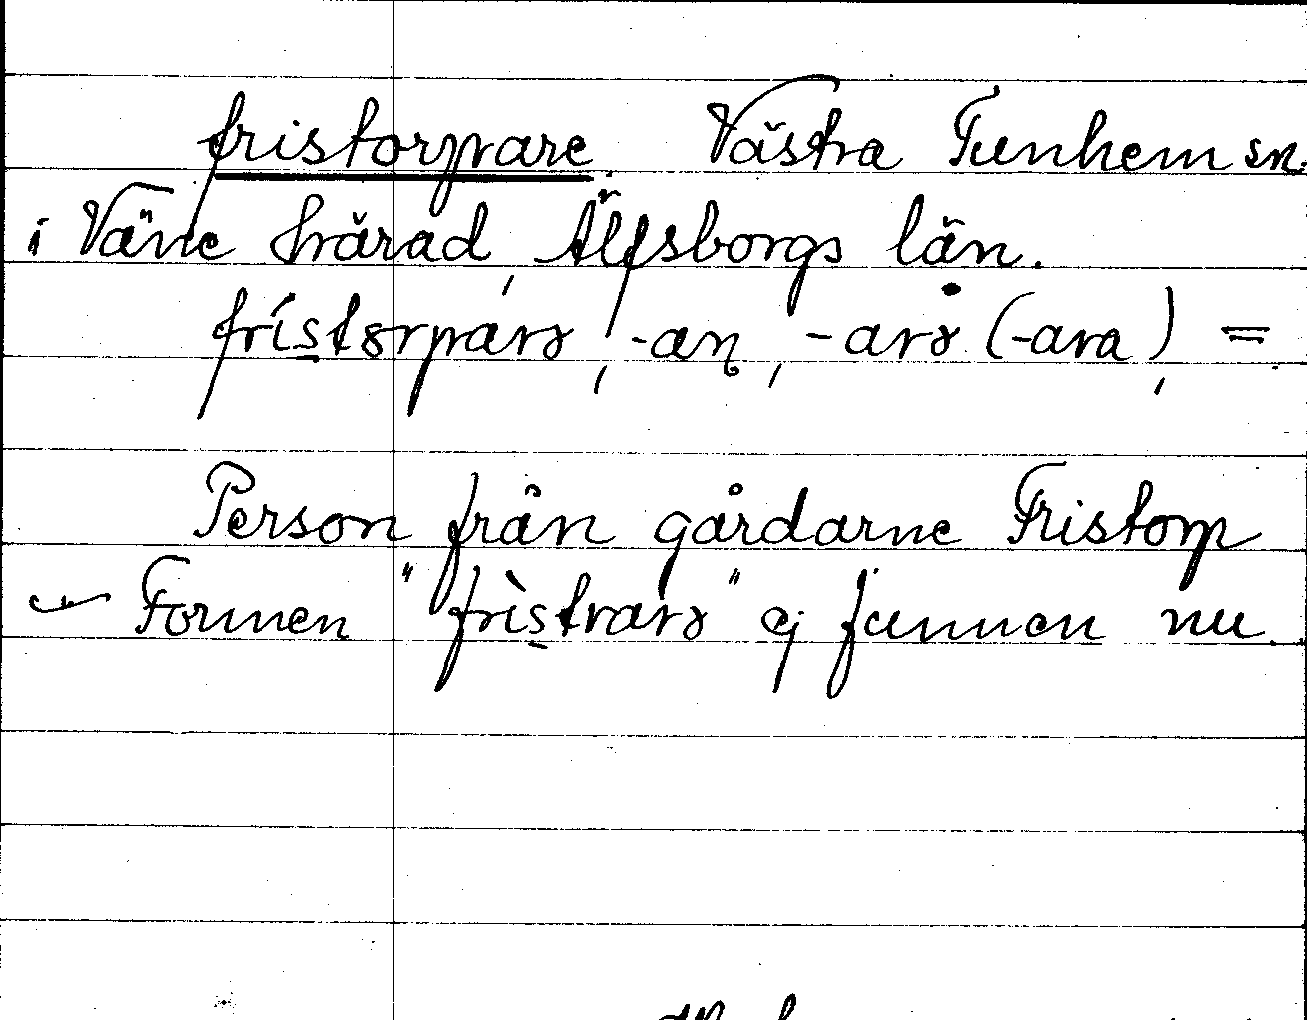 fristorpare. Västra Tunhem sn.
i Väne härad, Älfsborgs län.
fristorparə, -an, -arə (-ara), =
Person från gårdarne Fristorp
Formen "fristrarə" ej funnen nu.